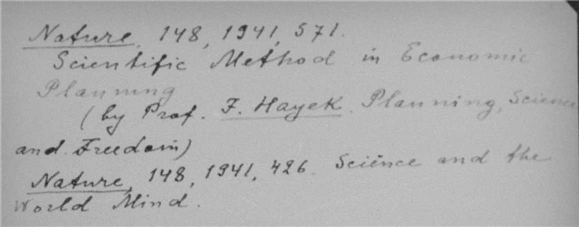 Nature, 148, 1941, 571.
Scientific Method in Economic
Planning
(by Prof. F. Hayek. Planning, Science
and Freedom)
Nature, 148, 1941, 426. Science and the
World Mind.